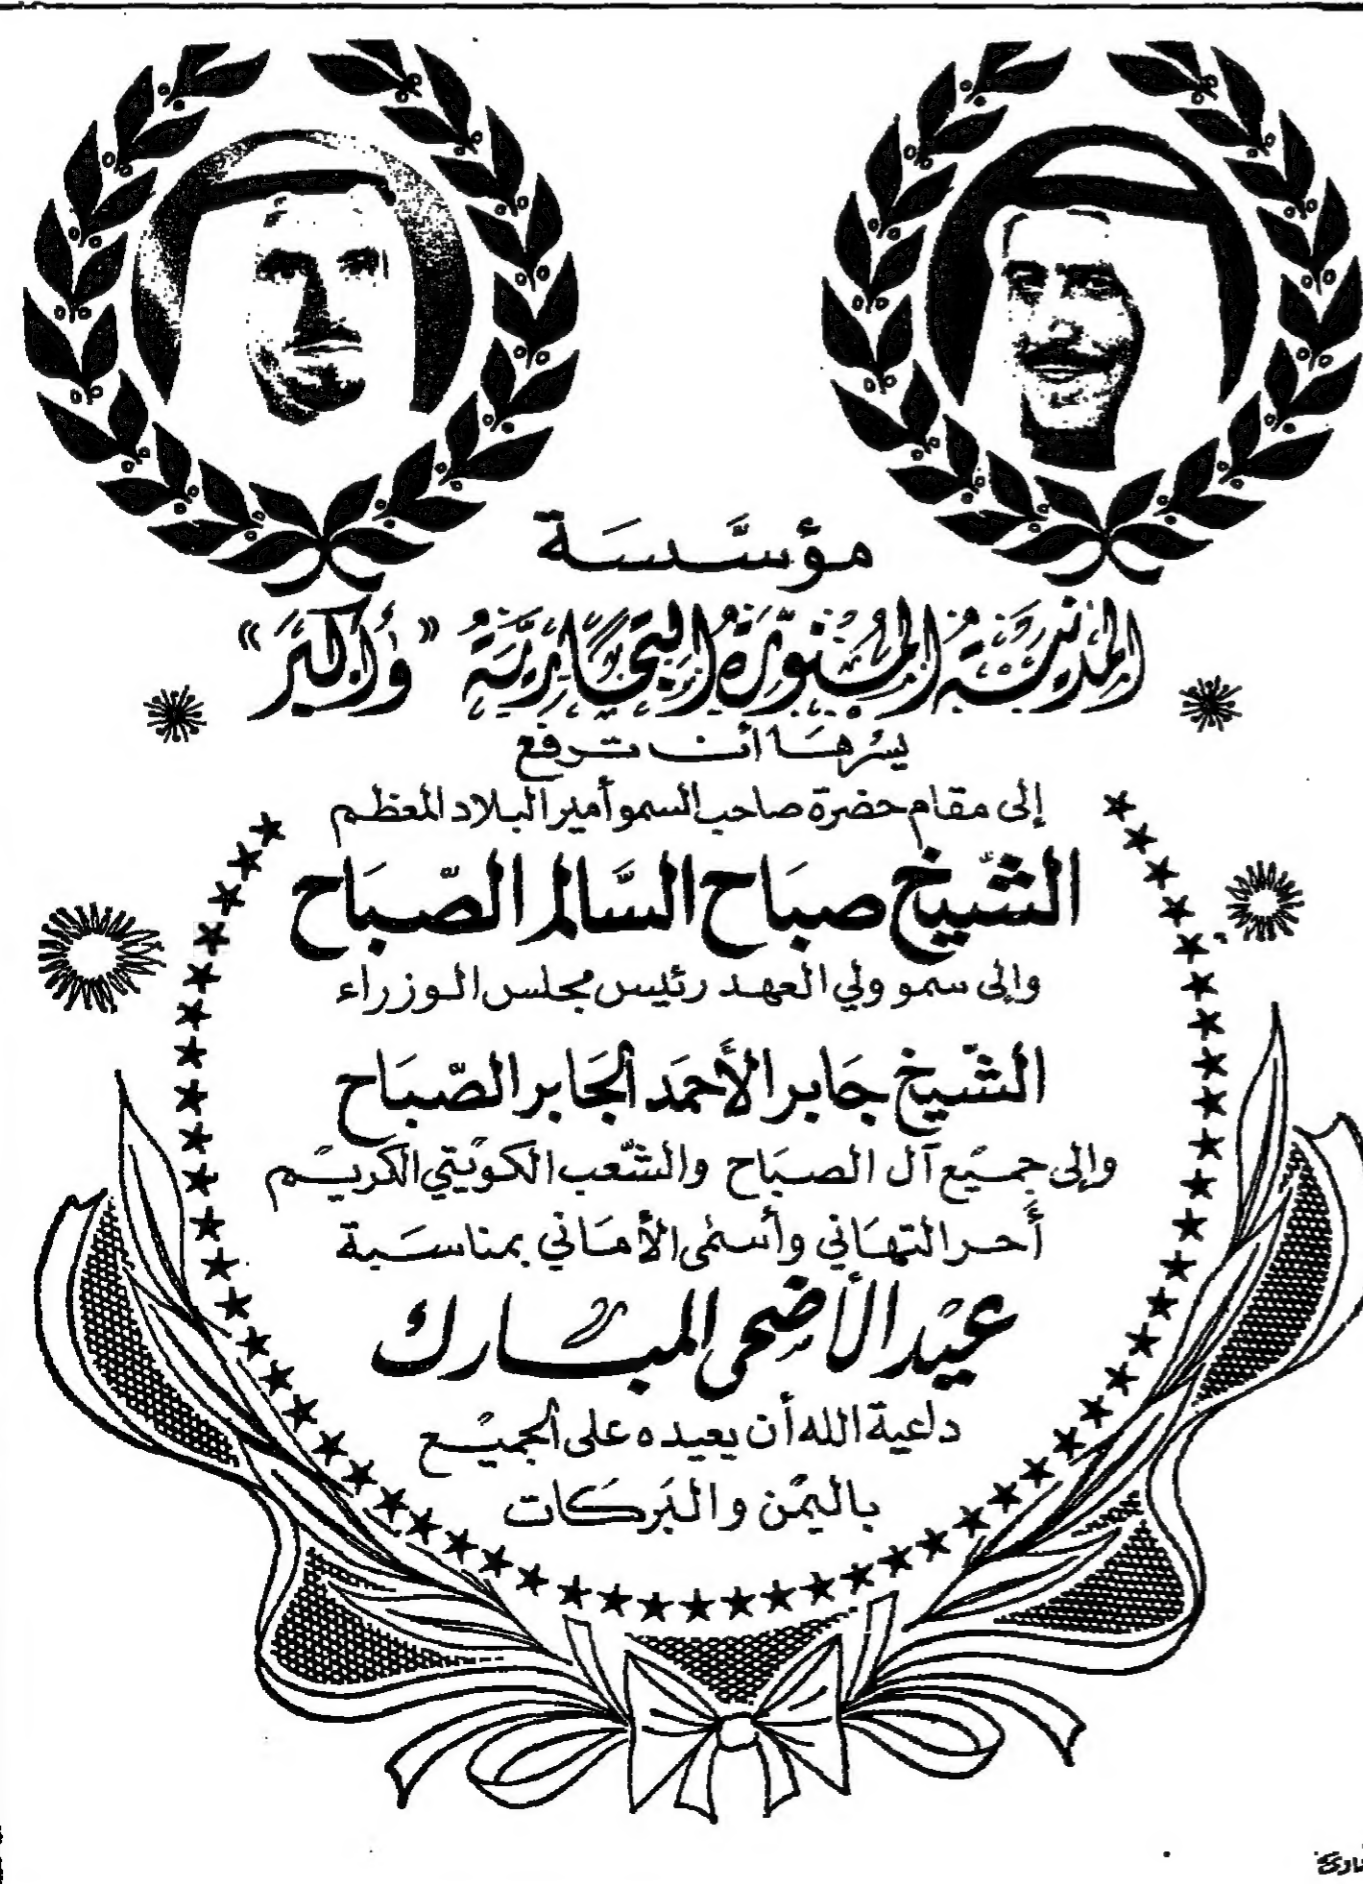 مؤسَّسَة
المدينَة المنوّرة التجَاريَّة «وَأكبَر»
يسُرهَا أن ترفع
إلى مقام حضرة صاحب السمو أمير البلاد المعظم
الشّيخ صبَاح السَّالم الصّبَاح
وإلى سمو ولي العهد رئيس مجلس الوزراء
الشّيخ جَابر الأحمَد الجَابر الصّبَاح
وإلى جميْع آل الصبَاح والشّعب الكويْتي الكريْم
أحَر التهَاني وأسمٰى الأمَاني بمناسَبة
عيْد الأضحى المبارك
داعية الله أن يعيده على الجميْع
باليمْن والبَركَات